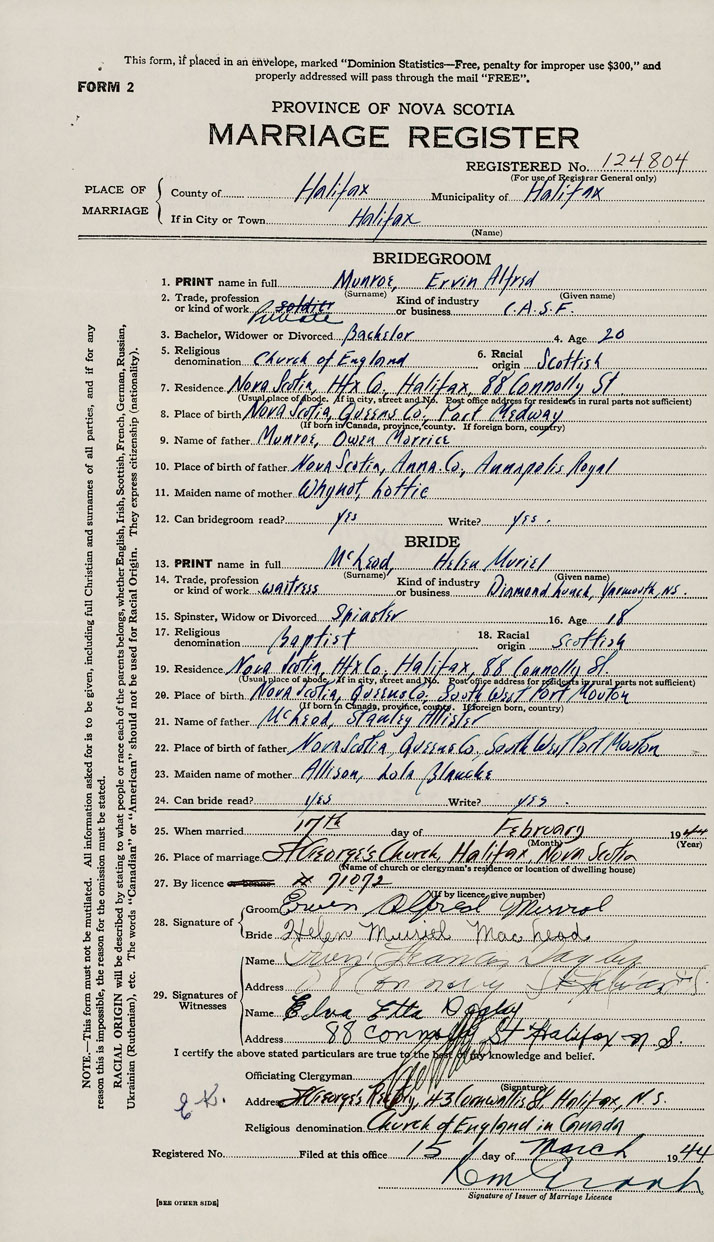 This form, if placed in an envelope, marked "Dominion Statistics—Free, penalty for improper use $300," and
properly addressed will pass through the mail "FREE".
FORM 2
PROVINCE OF NOVA SCOTIA
MARRIAGE REGISTER
REGISTERED No. 124804
(For use of Registrar General only)
PLACE OF MARRIAGE
County of Halifax Municipality of Halifax
If in City or Town Halifax
(Name)
BRIDEGROOM
1. PRINT name in full Munroe, Ervin Alfred
(Surname) (Given name)
2. Trade, profession or kind of work soldier Private Kind of industry or business C.A.S.F.
3. Bachelor, Widower or Divorced Bachelor 4. Age 20
5. Religious denomination Church of England 6. Racial origin Scottish
7. Residence Nova Scotia, Hfx Co, Halifax, 88 Connolly St.
(Usual place of abode. If in city, street and No. Post office address for residents in rural parts not sufficient)
8. Place of birth Nova Scotia, Queens Co, Port Medway
(If born in Canada, province, county. If foreign born, country)
9. Name of father Munroe, Owen Morrice
10. Place of birth of father Nova Scotia, Anna. Co, Annapolis Royal
11. Maiden name of mother Whynot, Lottie
12. Can bridegroom read? yes Write? yes.
BRIDE
13. PRINT name in full McLeod, Helen Muriel
(Surname) (Given name)
14. Trade, profession or kind of work waitress Kind of industry or business Diamond Lunch, Yarmouth, N.S.
15. Spinster, Widow or Divorced Spinster 16. Age 18
17. Religious denomination Baptist 18. Racial origin Scottish
19. Residence Nova Scotia, Hfx Co. Halifax, 88 Connolly St
(Usual place of abode. If in city, street and No. Post office address for residents in rural parts not sufficient)
20. Place of birth Nova Scotia, Queens Co, South West Port Mouton
(If born in Canada, province, county. If foreign born, country)
21. Name of father McLeod, Stanley Allister
22. Place of birth of father Nova Scotia Queens Co, South West Port Mouton
23. Maiden name of mother Allison, Lola Blanche
24. Can bride read? yes Write? yes.
25. When married 17th day of February 1944
(Month) (Year)
26. Place of marriage St George's Church, Halifax Nova Scotia
(Name of church or clergyman's residence or location of dwelling house)
27. By licence # 71072
(If by licence, give number)
28. Signature of
Groom Ervin Alfred
Bride Helen Muriel Mac Leod.
29. Signatures of Witnesses
Name
Address 88
Name Elva Etta
Address 88 Connolly St Halifax N.S.
I certify the above stated particulars are true to the best of my knowledge and belief.
Officiating Clergyman
(Signature)
Address St George's Rectory, 43 Cornwallis St, Halifax, N.S.
Religious denomination Church of England in Canada
Registered No. Filed at this office 15 day of March 1944
Signature of Issuer of Marriage Licence
[SEE OTHER SIDE]
NOTE.—This form must not be mutilated. All information asked for is to be given, including full Christian and surnames of all parties, and if for any
reason this is impossible, the reason for the omission must be stated.
RACIAL ORIGIN will be described by stating to what people or race each of the parents belongs, whether English, Irish, Scottish, French, German, Russian,
Ukrainian (Ruthenian), etc. The words "Canadian" or "American" should not be used for Racial Origin. They express citizenship (nationality).